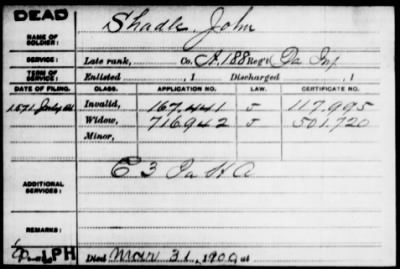 DEAD
NAME OF SOLDIER: Shadle, John
SERVICE: Late rank, Co. A, 188 Reg't Pa Inf
TERM OF SERVICE: Enlisted , 1 Discharged , 1
DATE OF FILING. CLASS. APPLICATION NO. LAW. CERTIFICATE NO.
1871, July Invalid, 167.441 J 117.995
Widow, 716.942 J 501.720
Minor,
ADDITIONAL SERVICES: E 3 Pa H A
REMARKS:
LPH Died Mar 31, 1909 at